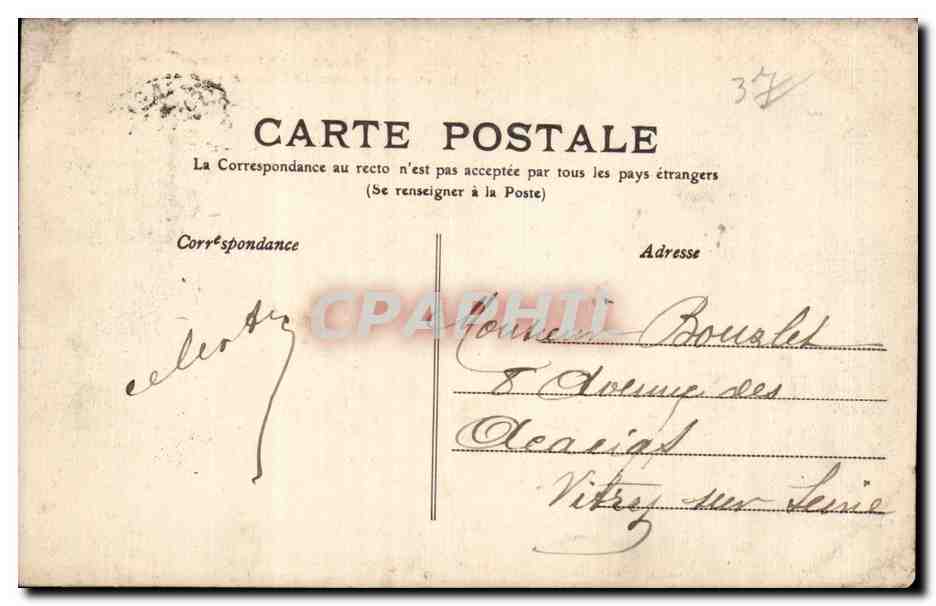 37
CARTE POSTALE
La Correspondance au recto n'est pas acceptée par tous les pays étrangers
(Se renseigner à la Poste)
Correspondance
Adresse
CPAPHIL
Monsieur Bouzlet
8 Avenue des
Acacias
Vitry sur Seine